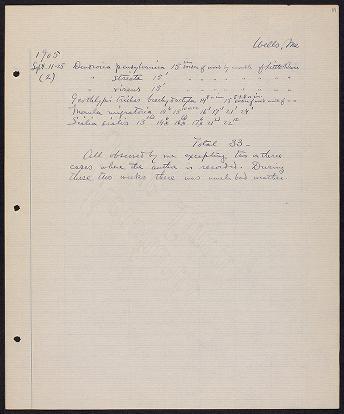 Wells, Me
1905
Sept. 11-25 Dendroica pensylvanica 15 edge of woods by mouth of Little River
(2) " striata 15' " " " " " "
" virens 15' " " " " " "
Geothlypis trichas brachydactyla 14' 15
Merula migratoria 14' 15 16' 17' 21' 24'
Sialia sialis 13 14 16 17 21 22
Total 33 -
All observed by me excepting two or three
cases where the author is recorded. During
these two weeks there was much bad weather